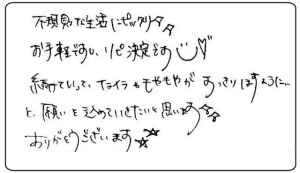 不規則な生活にピッタリ☆☆
お手軽ですし、リピ決定です
続けていって、イライラもモヤモヤがすっきりしますように…
と、願いを込めていきたいと思います☆☆
ありがとうございます☆☆